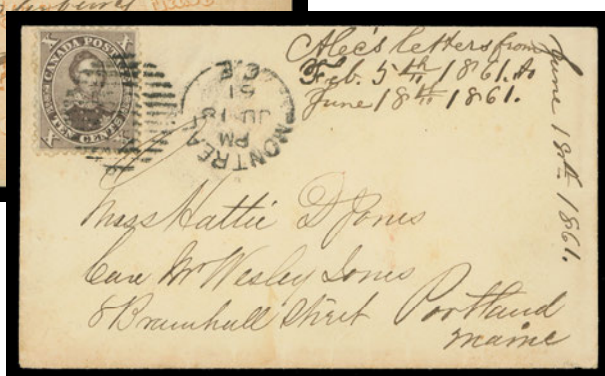 CANADA POST
TEN CENTS
MONTREAL
PM
JU 18
C.E
Alec's letters from
Feb. 5th 1861. to
June 18th 1861.
June 18th 1861.
Miss Hattie D Jones
Care Mr Wesley Jones
8 Bramhall Street Portland
Maine